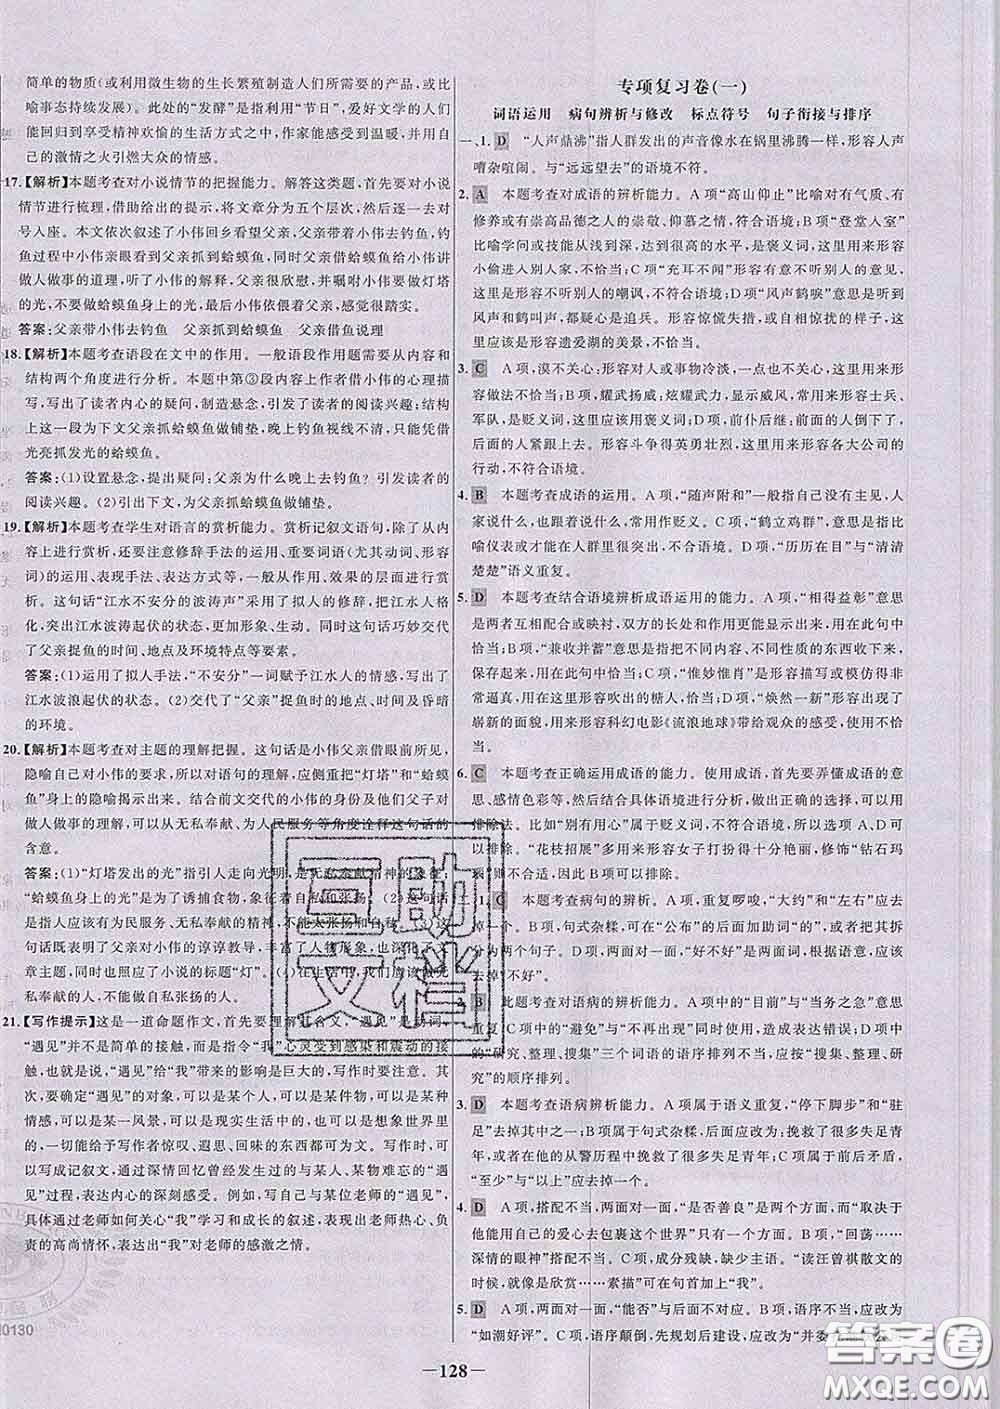 简单的物质(或利用微生物的生长繁殖制造人们所需要的产品，或比
喻事态持续发展)。此处的“发酵”是指利用“节日”，爱好文学的人们
能回归到享受精神欢愉的生活方式之中，作家能感受到温暖，并用自
己的激情之火引燃大众的情感。
17.【解析】本题考查对小说情节的把握能力。解答这类题，首先要对小说
情节进行梳理，借助给出的提示，将文章分为五个层次，然后一一去对
号入座。本文依次叙述了小伟回乡看望父亲，父亲带着小伟去钓鱼，
钓鱼过程中小伟亲眼看到父亲抓到蛤蟆鱼，父亲通过蛤蟆鱼说明了
做人做事的道理，听了小伟的解释，父亲很欣慰，并嘱咐小伟要做灯塔
的光，不要做蛤蟆鱼身上的光，最后小伟依偎着父亲，感觉很踏实。
答案：父亲带小伟去钓鱼　父亲抓到蛤蟆鱼　父亲借鱼说理
18.【解析】本题考查语段在文中的作用。一般语段作用题需要从内容和
结构两个角度进行分析。本题中第③段内容上作者借小伟的心理描
写，写出了读者内心的疑问，制造悬念，引发了读者的阅读兴趣；结构
上这一段为下文父亲抓蛤蟆鱼做铺垫，晚上钓鱼视线不清，只能凭借
光亮抓发光的蛤蟆鱼。
答案：(1)设置悬念，提出疑问：父亲为什么晚上去钓鱼？引发读者的
阅读兴趣。(2)引出下文，为父亲抓蛤蟆鱼做铺垫。
19.【解析】本题考查学生对语言的赏析能力。赏析记叙文语句，除了从内
容上进行赏析，还要注意修辞手法的运用、重要词语(尤其动词、形容
词)的运用、表现手法、表达方式等，一般从运用、效果的层面进行赏
析。这句话“江水不安分的波涛声”采用了拟人的修辞，把江水人格
化，写出江水波涛起伏的状态，更加形象、生动。同时这句话巧妙交代
了父亲捉鱼的时间、地点及环境特点等要素。
答案：(1)运用了拟人手法，“不安分”一词赋予江水人的情感，写出了
江水波浪起伏的状态。(2)交代了“父亲”捉鱼时的地点、时间及昏暗
的环境。
20.【解析】本题考查对主题的理解把握。这句话是小伟父亲借眼前所见，
隐喻自己对小伟的要求，所以对语句的理解，应侧重把“灯塔”和“蛤蟆
鱼”身上的隐喻揭示出来。结合前文交代的小伟的身份及他们父子对
做人做事的理解，可以从无私奉献、为人民服务等角度诠释这句话的
含意。
答案：(1)“灯塔发出的光”指引人走向光明，是无私奉献精神的象征；
“蛤蟆鱼身上的光”是为了诱捕食物，象征着自私和张扬。(2)这句话
是指人应该有为民服务、无私奉献的精神，不能太张扬和自私。(3)这
句话既表明了父亲对小伟的谆谆教导，丰富了人物形象，也突出了文
章主题，同时也照应了小说的标题“灯”。(4)在生活中，我们应做无
私奉献的人，不能做自私张扬的人。
21.【写作提示】这是一道命题作文，首先要理解题目含义，“遇见”是动词，
“遇见”并不是简单的接触，而是指令“我”心灵受到感染和震动的接
触，也就是说，“遇见”给“我”带来的影响是巨大的，写时不能有所偏
移。其次，要确定“遇见”的对象，可以是某个人，可以是某件物，可以是某种
情感，可以是某一风景，可以是现实生活中的，也可以是想象世界里
的，一切能给予写作者惊叹、遐思、回味的东西都可为文。写作时，可
以写成记叙文，通过深情回忆曾经发生过的与某人、某物难忘的“遇
见”过程，表达对生活的深刻感受。例如，写自己与某位老师的“遇见”，
具体写了老师如何关心“我”学习和成长的叙述，表现出老师热心、负
责的高尚情怀，表达出“我”对老师的感激之情。
专项复习卷(一)
词语运用　病句辨析与修改　标点符号　句子衔接与排序
一、1. D　“人声鼎沸”指人群发出的声音像水在锅里沸腾一样，形容人声
嘈杂喧闹。与“远远望去”的语境不符。
2. A　本题考查对成语的辨析能力。A项“高山仰止”比喻对有气质、有
修养或有崇高品德之人的崇敬、仰慕之情，符合语境；B项“登堂入室”
比喻学问或技能从浅到深，达到很高的水平，是褒义词，用来形容
小偷进入别人家，不恰当；C项“充耳不闻”形容不听别人的意见，
这里形容不听别人的嘲讽，不符合语境；D项“风声鹤唳”意思是听到
风声和鹤叫声，都疑心是追兵。形容惊慌失措，或自相惊扰的样子，
这里应该是形容遗爱湖的美景，不恰当。
3. C　A项，漠不关心：形容对人或事物冷淡，一点也不关心。这里用来形容
做法不恰当；B项，耀武扬威：炫耀武力，显示威风，常用来形容士兵、
军队，是贬义词，这里应该用褒义词；D项，前仆后继：前面的人倒下了，
后面的人紧跟上去。形容斗争得英勇壮烈，这里用来形容各大公司的
行动，不符合语境。
4. B　本题考查成语的运用。A项，“随声附和”一般是指自己没有主见，人
家说什么，也跟着说什么，常用作贬义。C项，“鹤立鸡群”，意思是：比
喻仪表或才能在人群里很突出，不合语境。D项，“历历在目”与“清清
楚楚”语义重复。
5. D　本题考查结合语境辨析成语运用的能力。A项，“相得益彰”意思
是两者互相配合或映衬，双方的长处和作用更能显示出来，用在此句中
恰当；B项，“兼收并蓄”意思是把不同内容、不同性质的东西收下来，
保存起来。用在此句中恰当；C项，“惟妙惟肖”意思是描写或模仿得
非常逼真。用在这里形容吹出的糖人，恰当；D项，“焕然一新”形容出现了
崭新的面貌，用来形容科幻电影《流浪地球》带给观众的感受，使用不
恰当。
6. C　本题考查正确运用成语的能力。使用成语，首先要弄懂成语的意
思、感情色彩等，然后结合具体语境进行分析。做选择题时，也可以使用
排除法。比如“别有用心”属于贬义词，不符合语境，所以选项A、D可
以排除。“花枝招展”多用来形容女子打扮得十分艳丽，修饰“钻石玛
瑙”则不合适，因此B项可以排除。
二、1. C　本题考查病句的辨析。A项，重复啰唆，“大约”和“左右”应去
掉一个；B项，句式杂糅，可在“公布”的后面加助词“的”，或者把其拆
分为两个句子。D项，两面对一面，“好不好”是两面词，根据语意，应该
去掉“不好”。
2. B　此题考查对语病的辨析能力。A项中的“目前”与“当务之急”意思
重复；C项中的“避免”与“不再出现”同时使用，造成表达错误；D项中
的“研究、整理、搜集”三个词语的语序排列不当，应按“搜集、整理、研
究”的顺序排列。
3. D　本题考查语病辨析能力。A项属于语义重复，“停下脚步”和“驻
足”去掉其中之一；B项属于句式杂糅，应改为：挽救了很多失足青
年，或者在他的从警历程中挽救了很多失足青年；C项属于前后矛盾，
“至少”与“以上”应去掉一个。
4. D　A项，搭配不当，两面对一面，“是否善良”是两个方面，而“取决于
他能用自己的爱心去包裹这个世界”只有一个方面。B项，“回荡……
深情的眼神”搭配不当。C项，成分残缺，缺少主语。“读汪曾祺散文的
时候，就像是欣赏……素描”可在句首加上“我”。
5. D　A项，两面对一面，“能否”与后面不对应。B项，语序不当，应改为
“如潮好评”。C项，语序颠倒，先规划后建设，应改为“并委
—128—
互助文档
答案圈
MXQE.COM
I0130